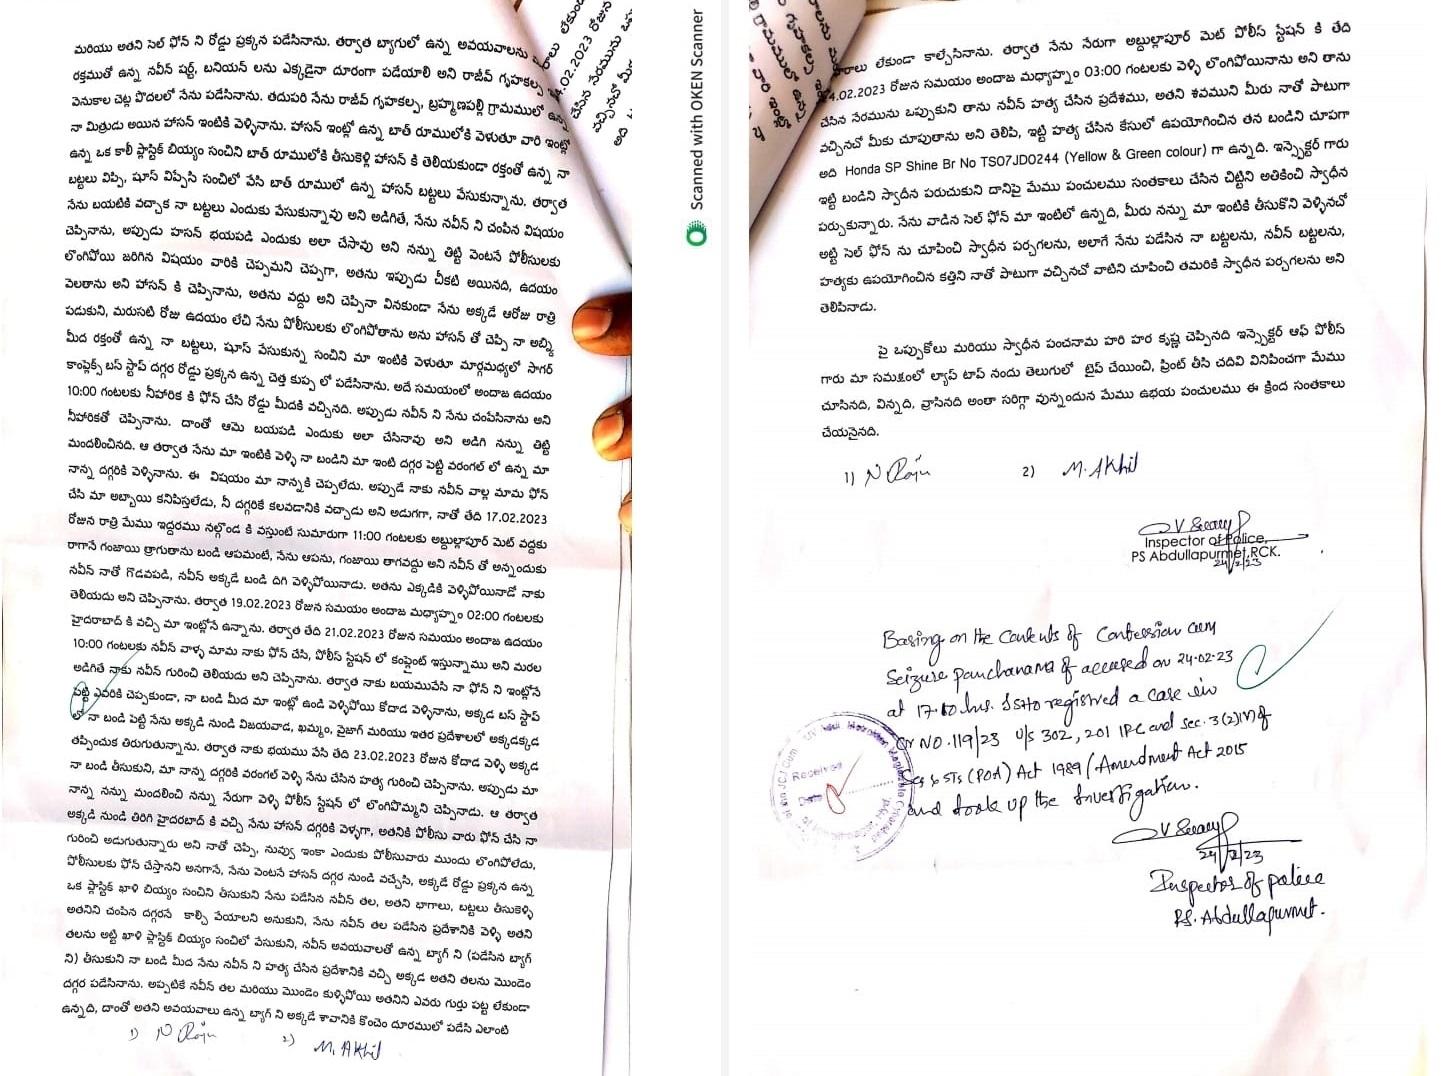 మరియు అతని సెల్ ఫోన్ ని రోడ్డు ప్రక్కన పడేసినాను. తర్వాత బ్యాగులో ఉన్న అవయవాలను
రక్తముతో ఉన్న నవీన్ షర్ట్, బనియన్ లను ఎక్కడైనా దూరంగా పడేయాలి అని రాజీవ్ గృహకల్ప
వెనుకాల చెట్ల పొదలలో నేను పడేసినాను. తదుపరి నేను రాజీవ్ గృహకల్ప, బ్రహ్మణపల్లి గ్రామములో ఉన్న
నా మిత్రుడు అయిన హాసన్ ఇంటికి వెళ్ళినాను. హాసన్ ఇంట్లో ఉన్న బాత్ రూములోకి వెళుతూ వారి ఇంట్లో
ఉన్న ఒక కాలీ ప్లాస్టిక్ బియ్యం సంచిని బాత్ రూములోకి తీసుకెళ్లి హాసన్ కి తెలియకుండా రక్తంతో ఉన్న నా
బట్టలు విప్పి, షూస్ విప్పేసి సంచిలో వేసి బాత్ రూములో ఉన్న హాసన్ బట్టలు వేసుకున్నాను. తర్వాత
నేను బయటికి వచ్చాక నా బట్టలు ఎందుకు వేసుకున్నావు అని అడిగితే, నేను నవీన్ ని చంపిన విషయం
చెప్పినాను, అప్పుడు హసన్ భయపడి ఎందుకు అలా చేసావు అని నన్ను తిట్టి వెంటనే పోలీసులకు
లొంగిపోయి జరిగిన విషయం వారికి చెప్పమని చెప్పగా, అతను ఇప్పుడు చీకటి అయినది, ఉదయం
వెలతాను అని హాసన్ కి చెప్పినాను, అతను వద్దు అని చెప్పినా వినకుండా నేను అక్కడే ఆరోజు రాత్రి
పడుకుని, మరుసటి రోజు ఉదయం లేచి నేను పోలీసులకు లొంగిపోతాను అను హాసన్ తో చెప్పి నా అబ్బి
మీద రక్తంతో ఉన్న నా బట్టలు, షూస్ వేసుకున్న సంచిని మా ఇంటికి వెళుతూ మార్గమధ్యలో సాగర్
కాంప్లెక్స్ బస్ స్టాప్ దగ్గర రోడ్డు ప్రక్కన ఉన్న చెత్త కుప్ప లో పడేసినాను. అదే సమయంలో అందాజ ఉదయం
10:00 గంటలకు నీహారిక కి ఫోన్ చేసి రోడ్డు మీదకి వచ్చినది. అప్పుడు నవీన్ ని నేను చంపేసినాను అని
నీహారికతో చెప్పినాను. దాంతో ఆమె బయపడి ఎందుకు అలా చేసినావు అని అడిగి నన్ను తిట్టి
మందలించినది. ఆ తర్వాత నేను మా ఇంటికి వెళ్ళి నా బండిని మా ఇంటి దగ్గర పెట్టి వరంగల్ లో ఉన్న మా
నాన్న దగ్గరికి వెళ్ళినాను. ఈ విషయం మా నాన్నకి చెప్పలేదు. అప్పుడే నాకు నవీన్ వాల్ల మామ ఫోన్
చేసి మా అబ్బాయి కనిపిస్తలేడు, నీ దగ్గరికే కలవడానికి వచ్చాడు అని అడుగగా, నాతో తేది 17.02.2023
రోజున రాత్రి మేము ఇద్దరము నల్గొండ కి వస్తుంటే సుమారుగా 11:00 గంటలకు అబ్దుల్లాపూర్ మెట్ వద్దకు
రాగానే గంజాయి త్రాగుతాను బండి ఆపమంటే, నేను ఆపను, గంజాయి తాగవద్దు అని నవీన్ తో అన్నందుకు
నవీన్ నాతో గొడవపడి, నవీన్ అక్కడే బండి దిగి వెళ్ళిపోయినాడు. అతను ఎక్కడికి వెళ్ళిపోయినాడో నాకు
తెలియదు అని చెప్పినాను. తర్వాత 19.02.2023 రోజున సమయం అందాజ మధ్యాహ్నం 02:00 గంటలకు
హైదరాబాద్ కి వచ్చి మా ఇంట్లోనే ఉన్నాను. తర్వాత తేది 21.02.2023 రోజున సమయం అందాజ ఉదయం
10:00 గంటలకు నవీన్ వాళ్ళ మామ నాకు ఫోన్ చేసి, పోలీస్ స్టేషన్ లో కంప్లైంట్ ఇస్తున్నాము అని మరల
అడిగితే నాకు నవీన్ గురించి తెలియదు అని చెప్పినాను. తర్వాత నాకు బయమువేసి నా ఫోన్ ని ఇంట్లోనే
పెట్టి ఎవరికి చెప్పకుండా, నా బండి మీద మా ఇంట్లో ఉండి వెళ్ళిపోయి కోదాడ వెళ్ళినాను, అక్కడ బస్ స్టాప్
లో నా బండి పెట్టి నేను అక్కడి నుండి విజయవాడ, ఖమ్మం, వైజాగ్ మరియు ఇతర ప్రదేశాలలో అక్కడక్కడ
తప్పించుక తిరుగుతున్నాను. తర్వాత నాకు భయము వేసి తేది 23.02.2023 రోజున కోదాడ వెళ్ళి అక్కడ
నా బండి తీసుకుని, మా నాన్న దగ్గరికి వరంగల్ వెళ్ళి నేను చేసిన హత్య గురించి చెప్పినాను. అప్పుడు మా
నాన్న నన్ను మందలించి నన్ను నేరుగా వెళ్ళి పోలీస్ స్టేషన్ లో లొంగిపొమ్మని చెప్పినాడు. ఆ తర్వాత
అక్కడి నుండి తిరిగి హైదరబాద్ కి వచ్చి నేను హాసన్ దగ్గరికి వెళ్ళగా, అతనికి పోలీసు వారు ఫోన్ చేసి నా
గురించి అడుగుతున్నారు అని నాతో చెప్పి, నువ్వు ఇంకా ఎందుకు పోలీసువారు ముందు లొంగిపోలేదు,
పోలీసులకు ఫోన్ చేస్తానని అనగానే, నేను వెంటనే హాసన్ దగ్గర నుండి వచ్చేసి, అక్కడే రోడ్డు ప్రక్కన ఉన్న
ఒక ప్లాస్టిక్ ఖాళి బియ్యం సంచిని తీసుకుని నేను పడేసిన నవీన్ తల, అతని భాగాలు, బట్టలు తీసుకెళ్ళి
అతనిని చంపిన దగ్గరనే కాల్చి వేయాలని అనుకుని, నేను నవీన్ తల పడేసిన ప్రదేశానికి వెళ్ళి అతని
తలను అట్టి ఖాళి ప్లాస్టిక్ బియ్యం సంచిలో వేసుకుని, నవీన్ అవయవాలతో ఉన్న బ్యాగ్ ని (పడేసిన బ్యాగ్
ని) తీసుకుని నా బండి మీద నేను నవీన్ ని హత్య చేసిన ప్రదేశానికి వచ్చి అక్కడ అతని తలను మొండెం
దగ్గర పడేసినాను. అప్పటికే నవీన్ తల మరియు మొండెం కుళ్ళిపోయి అతనిని ఎవరు గుర్తు పట్ట లేకుండా
ఉన్నది, దాంతో అతని అవయవాలు ఉన్న బ్యాగ్ ని అక్కడే శావానికి కొంచెం దూరములో పడేసి ఎలాంటి
1) N Raju 2) M. Akhil
Scanned with OKEN Scanner
లేకుండా కాల్చేసినాను. తర్వాత నేను నేరుగా అబ్దుల్లాపూర్ మెట్ పోలీస్ స్టేషన్ కి తేది
4.02.2023 రోజున సమయం అందాజ మధ్యాహ్నం 03:00 గంటలకు వెళ్ళి లొంగిపోయినాను అని తాను
చేసిన నేరమును ఒప్పుకుని తాను నవీన్ హత్య చేసిన ప్రదేశము, అతని శవముని మీరు నాతో పాటుగా
వచ్చినచో మీకు చూపుతాను అని తెలిపి, ఇట్టి హత్య చేసిన కేసులో ఉపయోగించిన తన బండిని చూపగా
అది Honda SP Shine Br No TS07JD0244 (Yellow & Green colour) గా ఉన్నది. ఇన్స్పెక్టర్ గారు
ఇట్టి బండిని స్వాధీన పరుచుకుని దానిపై మేము పంచులము సంతకాలు చేసిన చిట్టిని అతికించి స్వాధీన
పర్చుకున్నారు. నేను వాడిన సెల్ ఫోన్ మా ఇంటిలో ఉన్నది, మీరు నన్ను మా ఇంటికి తీసుకొని వెళ్ళినచో
అట్టి సెల్ ఫోన్ ను చూపించి స్వాధీన పర్చగలను, అలాగే నేను పడేసిన నా బట్టలను, నవీన్ బట్టలను,
హత్యకు ఉపయోగించిన కత్తిని నాతో పాటుగా వచ్చినచో వాటిని చూపించి తమరికి స్వాధీన పర్చగలను అని
తెలిపినాడు.
పై ఒప్పుకోలు మరియు స్వాధీన పంచనామ హరి హర కృష్ణ చెప్పినది ఇన్స్పెక్టర్ ఆఫ్ పోలీస్
గారు మా సమక్షంలో ల్యాప్ టాప్ నందు తెలుగులో టైప్ చేయించి, ప్రింట్ తీసి చదివి వినిపించగా మేము
చూసినది, విన్నది, వ్రాసినది అంతా సరిగ్గా వున్నందున మేము ఉభయ పంచులము ఈ క్రింద సంతకాలు
చేయనైనది.
1) N Raju 2) M. Akhil
Inspector of Police,
PS Abdullapurmet, RCK.
24/2/23
Basing on the Contents of Confession cum
Seizure panchanama of accused on 24-02-23
at 17-10 hrs. I SHO registered a case in
Cr NO. 119/23 U/s 302, 201 IPC and sec. 3(2)(v) of
SCs & STs (POA) Act 1989 / Amendment Act 2015
and took up the Investigation.
Received
24/2/23
Inspector of police
PS. Abdullapurmet.